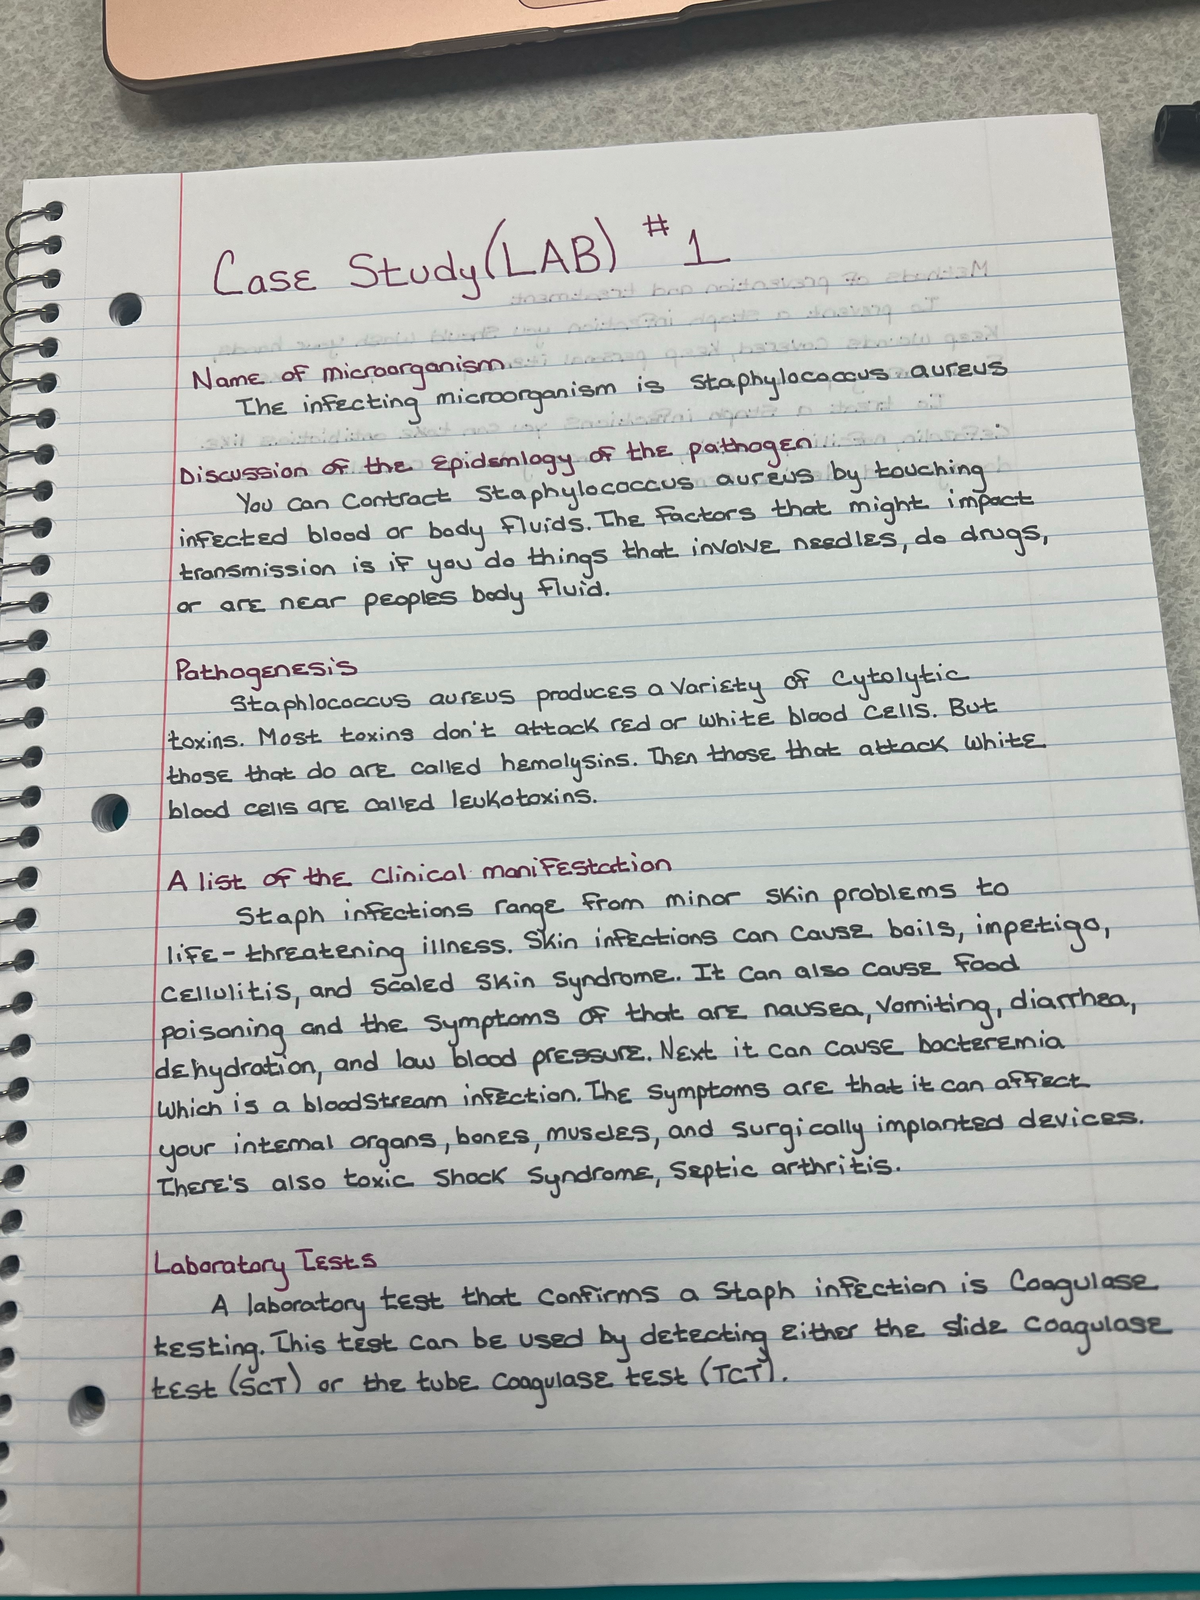 Case Study (LAB) #1
Name of microorganism
The infecting microorganism is Staphylococcus aureus
Discussion of the Epidemlogy of the pathogen
You can contract Staphylococcus aureus by touching
infected blood or body fluids. The factors that might impact
transmission is if you do things that involve needles, do drugs,
or are near peoples body fluid.
Pathogenesis
Staphlococcus aureus produces a variety of cytolytic
toxins. Most toxins don't attack red or white blood cells. But
those that do are called hemolysins. Then those that attack white
blood cells are called leukotoxins.
A list of the clinical manifestation
Staph infections range from minor skin problems to
life-threatening illness. Skin infections can cause boils, impetigo,
cellulitis, and scaled skin syndrome. It can also cause food
poisoning and the symptoms of that are nausea, vomiting, diarrhea,
dehydration, and low blood pressure. Next it can cause bacteremia
which is a bloodstream infection. The symptoms are that it can affect
your internal organs, bones, muscles, and surgically implanted devices.
There's also toxic shock syndrome, septic arthritis.
Laboratory Tests
A laboratory test that confirms a staph infection is Coagulase
testing. This test can be used by detecting either the slide coagulase
test (SCT) or the tube coagulase test (TCT).